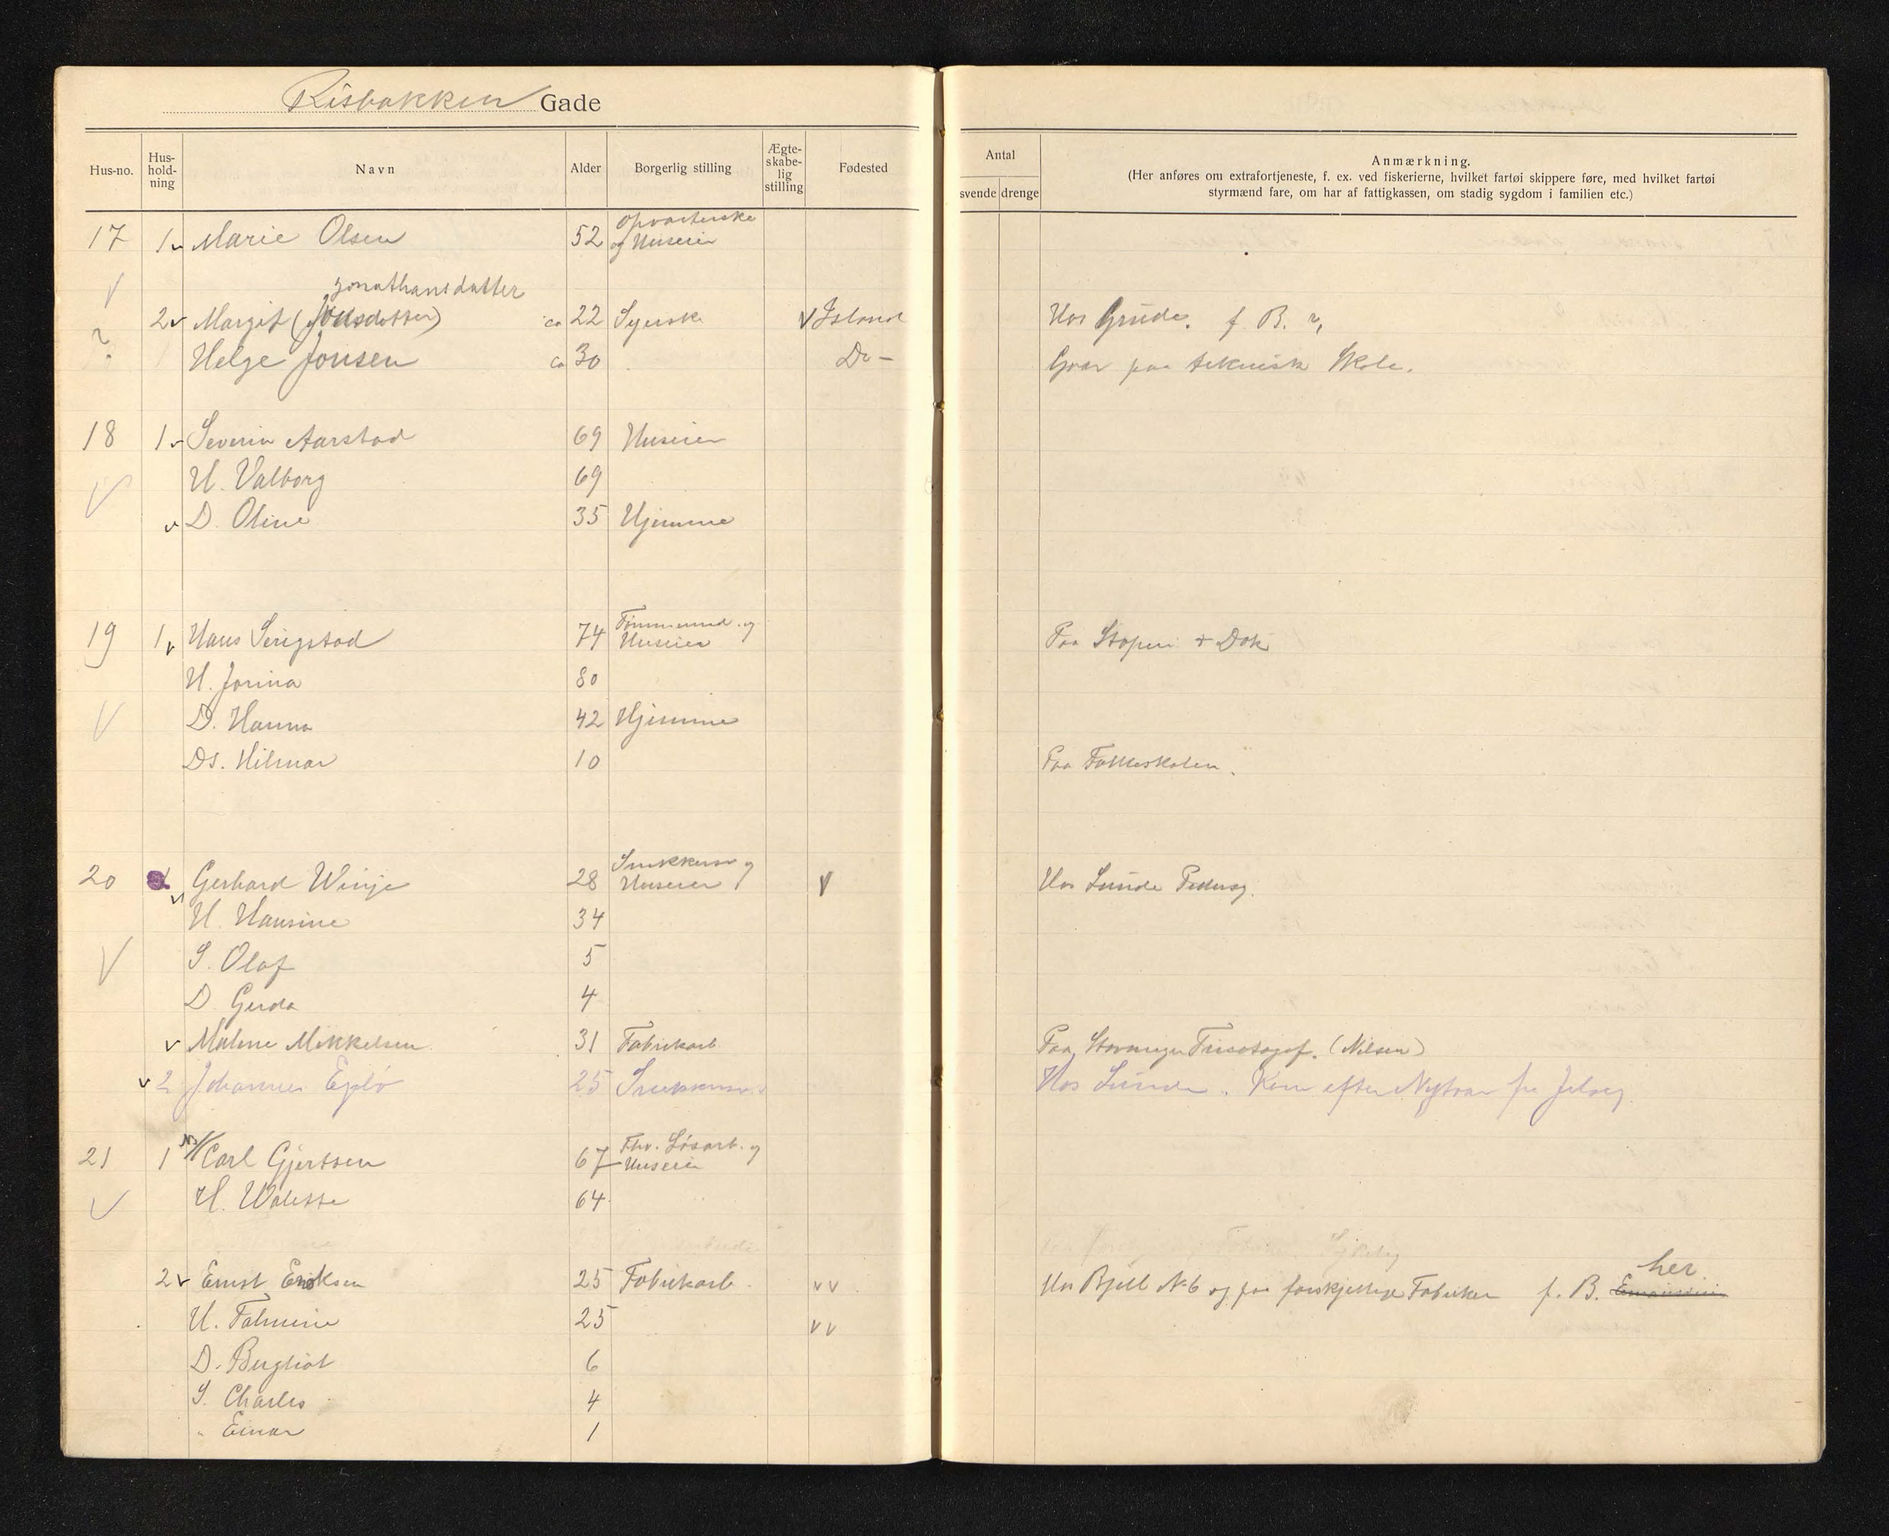 Risbakken Gade
Hus-no. Hus-hold-ning Navn Alder Borgerlig stilling Ægte-skabe-lig stilling Fødested
Antal
svende drenge
Anmærkning.
(Her anføres om extrafortjeneste, f. ex. ved fiskerierne, hvilket fartøi skippere føre, med hvilket fartøi
styrmænd fare, om har af fattigkassen, om stadig sygdom i familien etc.)
17 1 Marie Olsen 52 Opvarterske og Huseier
Jonathansdatter
2 Margit (Jonsdotter) ca 22 Syerske Island Hos Grude. f. B. ?
? Helge Jonsen ca 30 Do – Gaar paa teknisk Skole.
18 1 Severin Aarstad 69 Huseier
H. Valborg 69
D. Oline 35 Hjemme
19 1 Hans Serigstad 74 Tømmermd. og Huseier Paa Støperi + Dok
H. Jorina 80
D. Hanna 42 Hjemme
Ds. Hilmar 10 Paa Folkeskolen.
20 Gerhard Winje 28 Snekkersv og Huseier Hos Lunde Pedersg.
H. Hansine 34
S. Olaf 5
D Gerda 4
Malene Mikkelsen 31 Fabrikarb. Paa Stavanger Tricotagef. (Nilsen)
2 Johannes Egelø 25 Snekkersv. Hos Lunde. Kom efter Nytaar fra Jelsøy.
21 1 Carl Gjertsen 67 Fhv. Løsarb. og Huseier
H. Walette 64
2 Ernst Eriksen 25 Fabrikarb. Hos Bjell No 6 og paa forskjellige Fabriker f. B. her
H. Tomine 25
D. Bergliot 6
S. Charles 4
" Einar 1